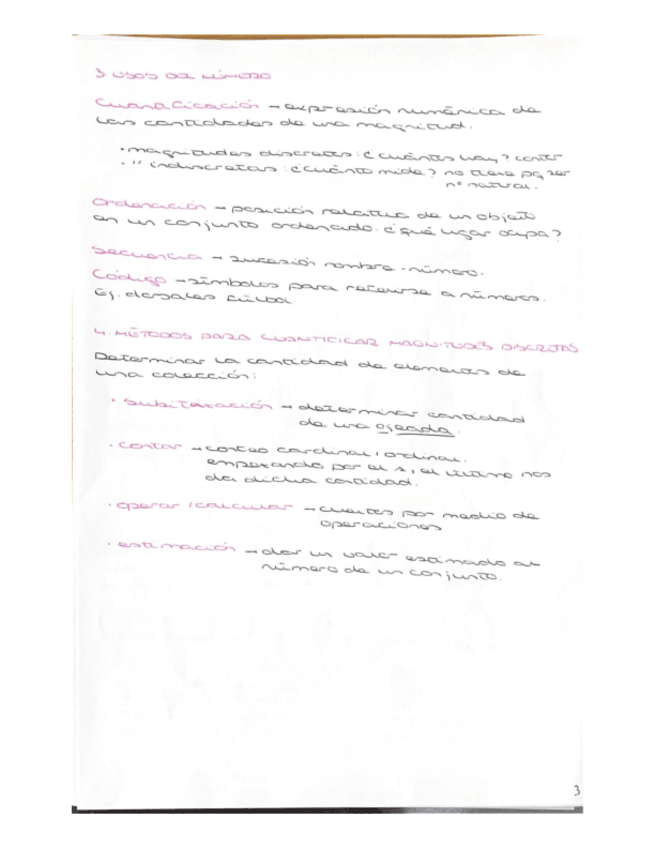 3 USOS DEL NÚMERO
Cuantificación → expresión numérica de
las cantidades de una magnitud.
• magnitudes discretas: ¿cuántos hay? contar
• " indiscretas: ¿cuánto mide? no tiene pq ser
nº natural.
Ordenación → posición relativa de un objeto
en un conjunto ordenado. ¿qué lugar ocupa?
Secuencia → sucesión nombre-número.
Código → símbolos para referirse a números.
Ej. dorsales fútbol
4. MÉTODOS PARA CUANTIFICAR MAGNITUDES DISCRETAS
Determinar la cantidad de elementos de
una colección:
• Subitización → determinar cantidad
de una ojeada.
• Contar → conteo cardinal / ordinal.
empezando por el 1, el último nos
da dicha cantidad.
• operar / calcular → cuentas por medio de
operaciones
• estimación → dar un valor estimado al
número de un conjunto.
3